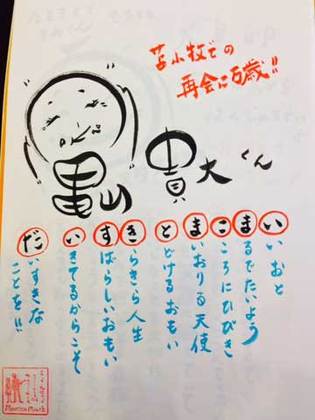 苫小牧での
再会に万歳!!
亀山 貴大くん
いいおと
まるでたいよう
こころにひびき
まいおりる天使
とどけるおもい
きらきら人生
すばらしいおもい
いきてるからこそ
だいすきな
ことを!!